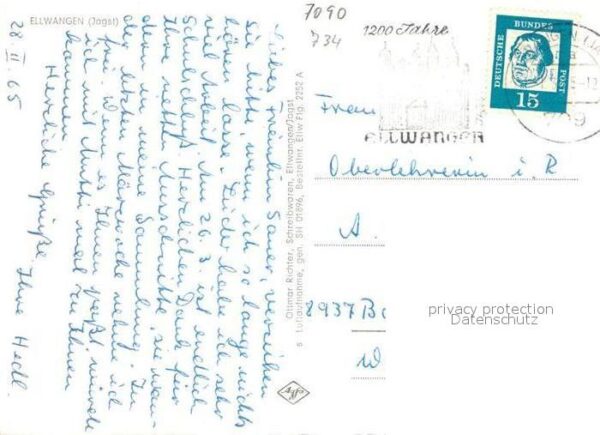 ELLWANGEN (Jagst)
28. II. 65
Liebes Fräulein Sauer, verzeihen
Sie bitte, wenn ich so lange nichts
hören lasse. Leider habe ich sehr
viel Arbeit. Am 26. 3. ist endlich
Schulschluß. Herzlichen Dank für
Ihre netten Ausschnitte, sie wan-
dern in meine Sammlung. In
der Märzwoche nehme ich
frei. Wenn es Ihnen paßt, würde
ich mit Mutti mal zu Ihnen
kommen.
Herzliche Grüße, Ihre Hedl.
Ottmar Richter, Schreibwaren, Ellwangen/Jagst
Luftaufnahme, gen. SH 01896, Bestellnr. Ellw Flg. 2252 A
Agfa
7090
734
1200 Jahre
ELLWANGEN
DEUTSCHE BUNDES POST
15
Frau
Oberlehrerin i. R
A.
8937 B
W
privacy protection
Datenschutz